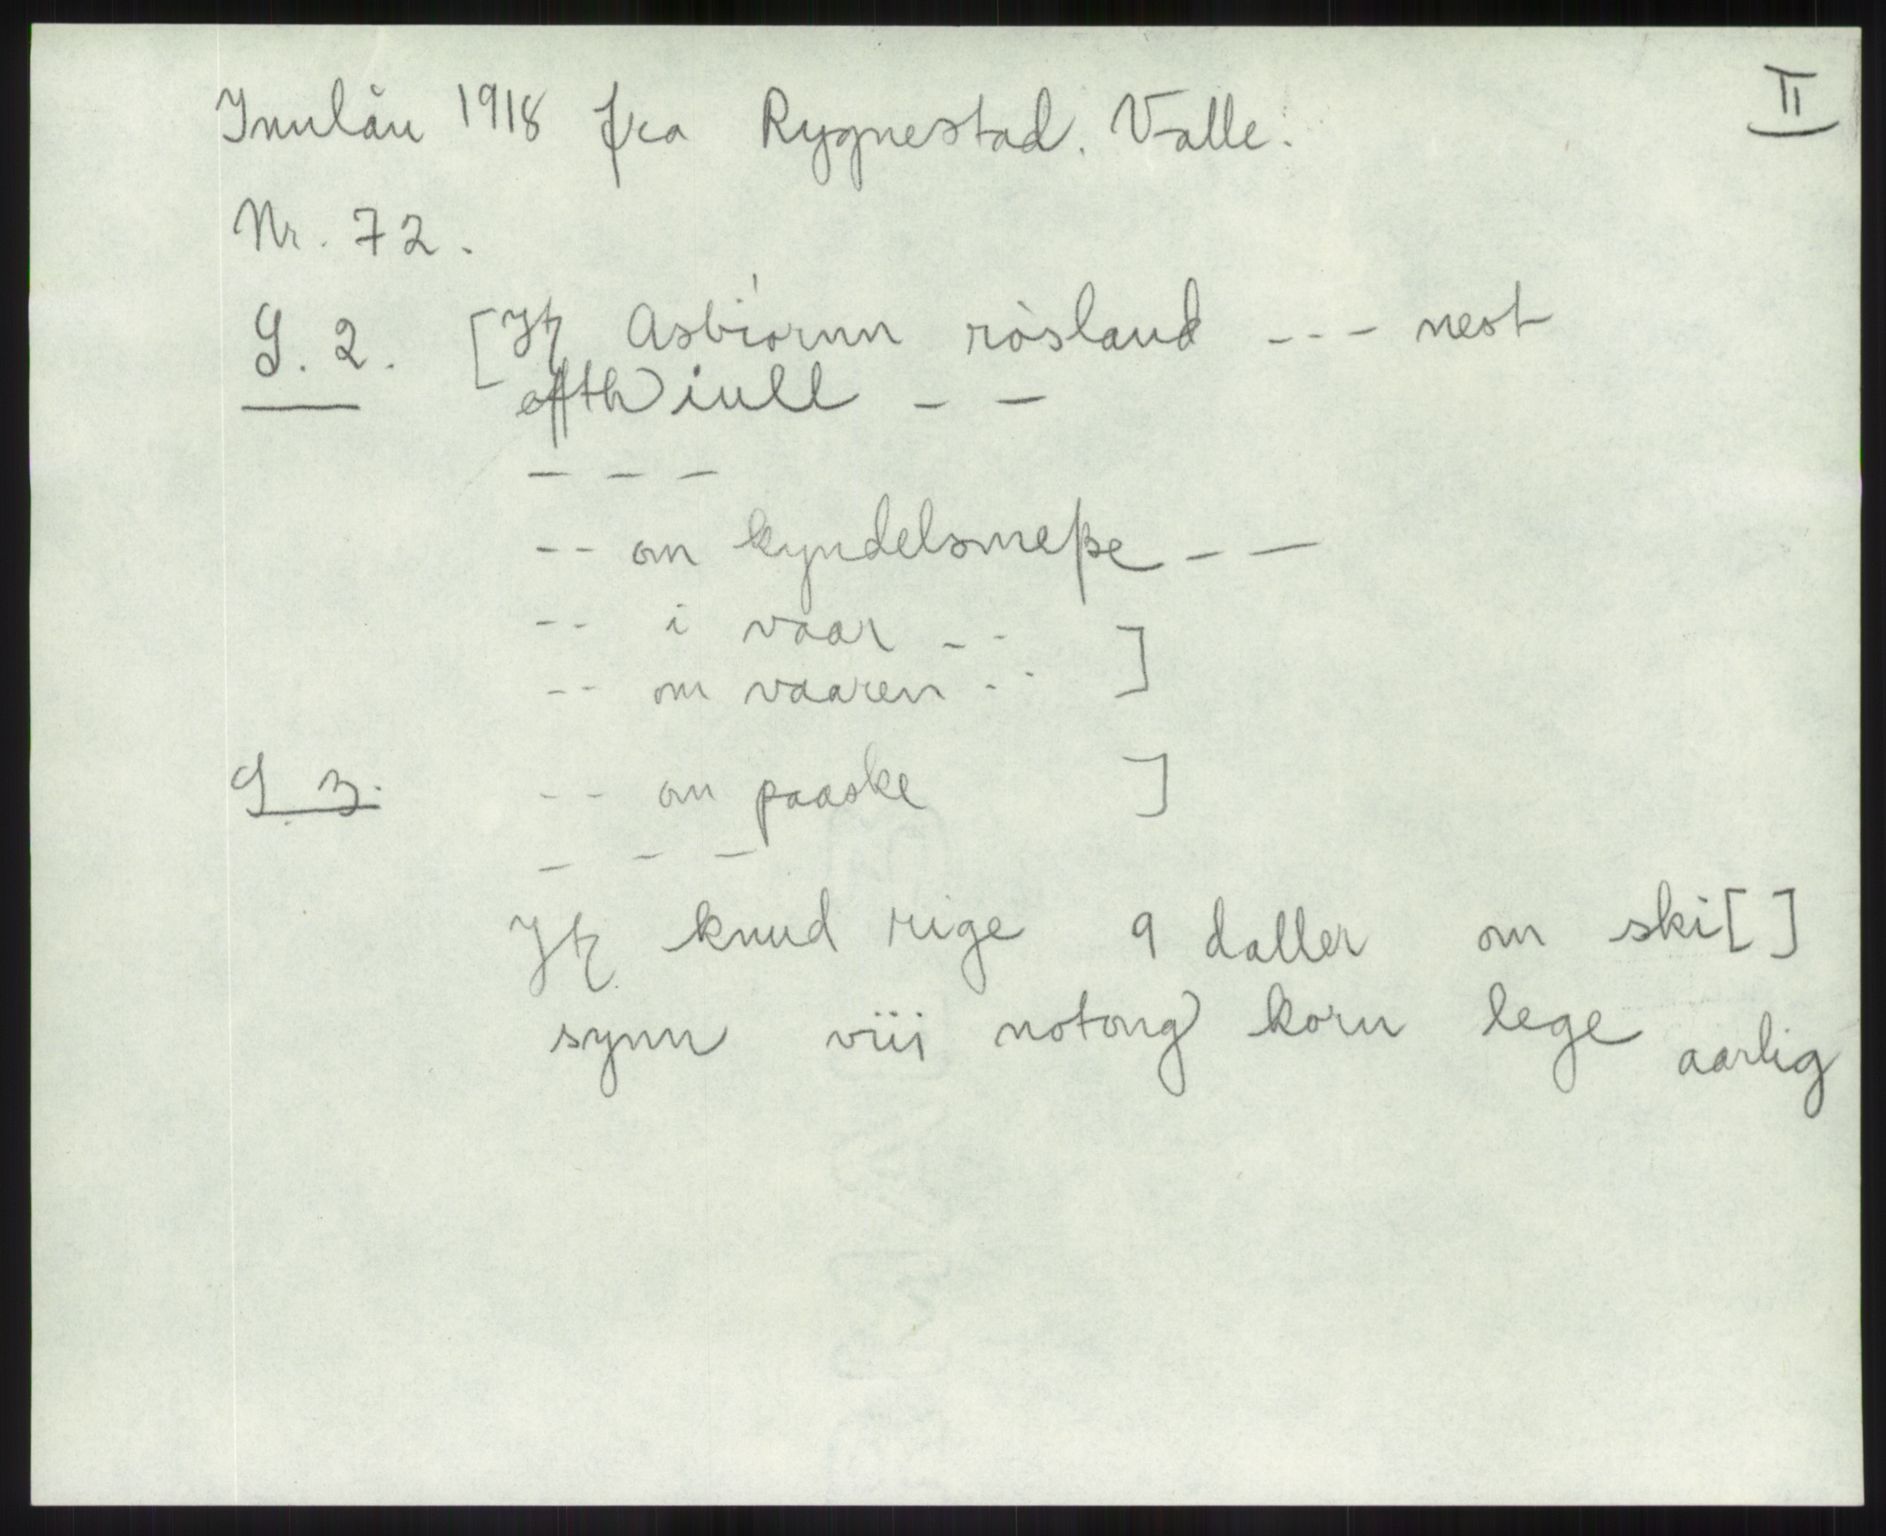 Innlån 1918 fra Rygnestad. Valle.
II
Nr. 72.
S. 2. [Jtz Asbiørnn røsland --- nest
effth iull - -
- - -
-- om kyndelsmeße - -
-- i vaar -- ]
-- om vaaren -- ]
S 3. -- om paaske ]
- - -
Jtz knud rige 9 daller om ski[ ]
synn viii notong korn lege aarlig